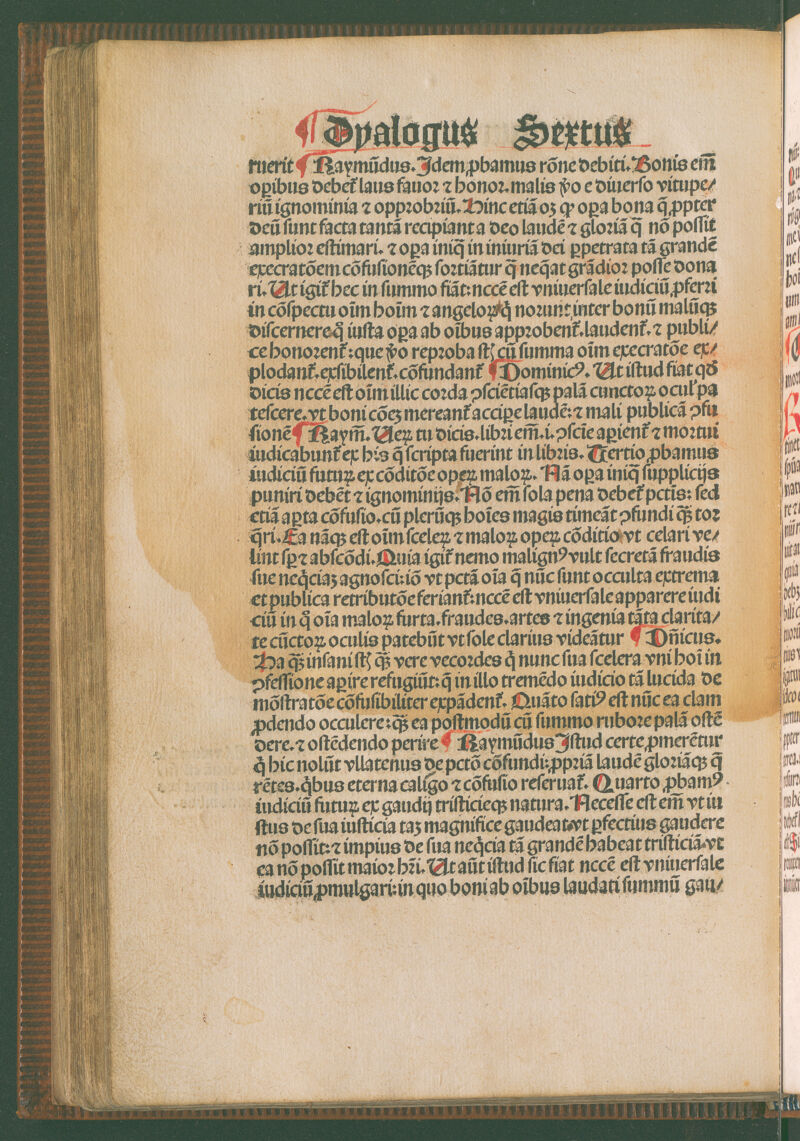 ¶ Dyalogus Sextus
ruerit ¶ Raymũdus. Idem ꝓbamus rõne debiti. Bonis em̃
oꝑibus debet̃ laus fauor ⁊ honor. malis ꝟo e diuerso vitupe/
riũ ignominia ⁊ opprobriũ. Hinc etiã oꝫ ꝙ oꝑa bona q̃ ꝓpter
deũ sunt facta tantã recipiant a deo laudẽ ⁊ gloriã q̃ nõ possit
amplior estimari. ⁊ oꝑa iniq̃ in iniuriã dei ꝑpetrata tã grandẽ
execratõem cõfusionẽqꝫ sortiãtur q̃ neq̃at grãdior posse dona
ri. Ut igit̃ hec in summo fiãt: nccẽ est vniuersale iudiciũ ꝓferri
in cõspectu oĩm hoĩm ⁊ angeloꝝ q̇ norunt inter bonũ malũqꝫ
discernere q̇ iusta oꝑa ab oĩbus approbent̃. laudent̃. ⁊ publi/
ce honorent̃: que ꝟo reproba st̃ cũ summa oĩm execratõe ex/
plodant̃. exsibilent̃. cõfundant̃ ¶ Dominicꝰ. Ut istud fiat qđ
dicis nccẽ est oĩm illic corda ꝯsciẽtiasqꝫ palã cunctoꝝ ocul̕ pa
tescere. vt boni cõeꝫ mereant̃ acciꝑe laudẽ: ⁊ mali publicã ꝯfu
sionẽ ¶ Raym̃. Ueꝝ tu dicis. libri em̃. i. ꝯscĩe aꝑient̃ ⁊ mortui
iudicabunt̃ ex his q̃ scripta fuerint in libris. Tertio ꝓbamus
iudiciũ futuꝝ ex cõditõe oꝑeꝝ maloꝝ. Nã oꝑa iniq̃ supplicijs
puniri debẽt ⁊ ignominijs. Nõ em̃ sola pena debet̃ pctĩs: sed
etiã aꝑta cõfusio. cũ plerũqꝫ hoĩes magis timeãt ꝯfundi q̃ꝫ tor
q̃ri. Ea nãqꝫ est oĩm sceleꝝ ⁊ maloꝝ oꝑeꝝ cõditio vt celari ve/
lint sꝑ ⁊ abscõdi. Quia igit̃ nemo malignꝰ vult secretã fraudis
sue neq̇ciaꝫ agnosci: iõ vt pctã oĩa q̃ nũc sunt occulta extrema
et publica retributõe feriant̃: nccẽ est vniuersale apparere iudi
ciũ in q̊ oĩa maloꝝ furta. fraudes. artes ⁊ ingenia tãta clarita/
te cũctoꝝ oculis patebũt vt sole clarius videãtur ¶ Dñicus.
Ha q̃ꝫ insani st̃ q̃ꝫ vere vecordes q̇ nunc sua scelera vni hoĩ in
ꝯfessione aꝑire refugiũt: q̃ in illo tremẽdo iudicio tã lucida de
mõstratõe cõfusibiliter expãdent̃. Quãto satiꝰ est nũc ea clam
ꝓdendo occulere: q̃ꝫ ea postmodũ cũ summo rubore palã ostẽ
dere. ⁊ ostẽdendo perire ¶ Raymũdus Istud certe ꝓmerẽtur
q̇ hic nolũt vllatenus de pctõ cõfundi: ꝓpriã laudẽ gloriãqꝫ q̃
rẽtes. q̇bus eterna caligo ⁊ cõfusio reseruat̃. Quarto ꝓbamꝰ
iudiciũ futuꝝ ex gaudij tristicieqꝫ natura. Necesse est em̃ vt iu
stus de sua iusticia taꝫ magnifice gaudeat vt ꝑfectius gaudere
nõ possit: ⁊ impius de sua neq̇cia tã grandẽ habeat tristiciã vt
ea nõ possit maior hr̃i. Ut aũt istud sic fiat nccẽ est vniuersale
iudiciũ ꝓmulgari: in quo boni ab oĩbus laudati summũ gau/